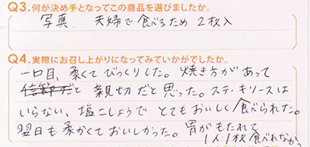 Q3.何が決め手となってこの商品を選びましたか。
写真 夫婦で食べるため 2枚入
Q4.実際にお召し上がりになってみていかがでしたか。
一口目、柔くてびっくりした。焼き方があって
親切だと思った。ステーキソースは
いらない、塩こしょうでとてもおいしく食べられた。
翌日も柔かくておいしかった。胃がもたれて
1人1枚食べれなか